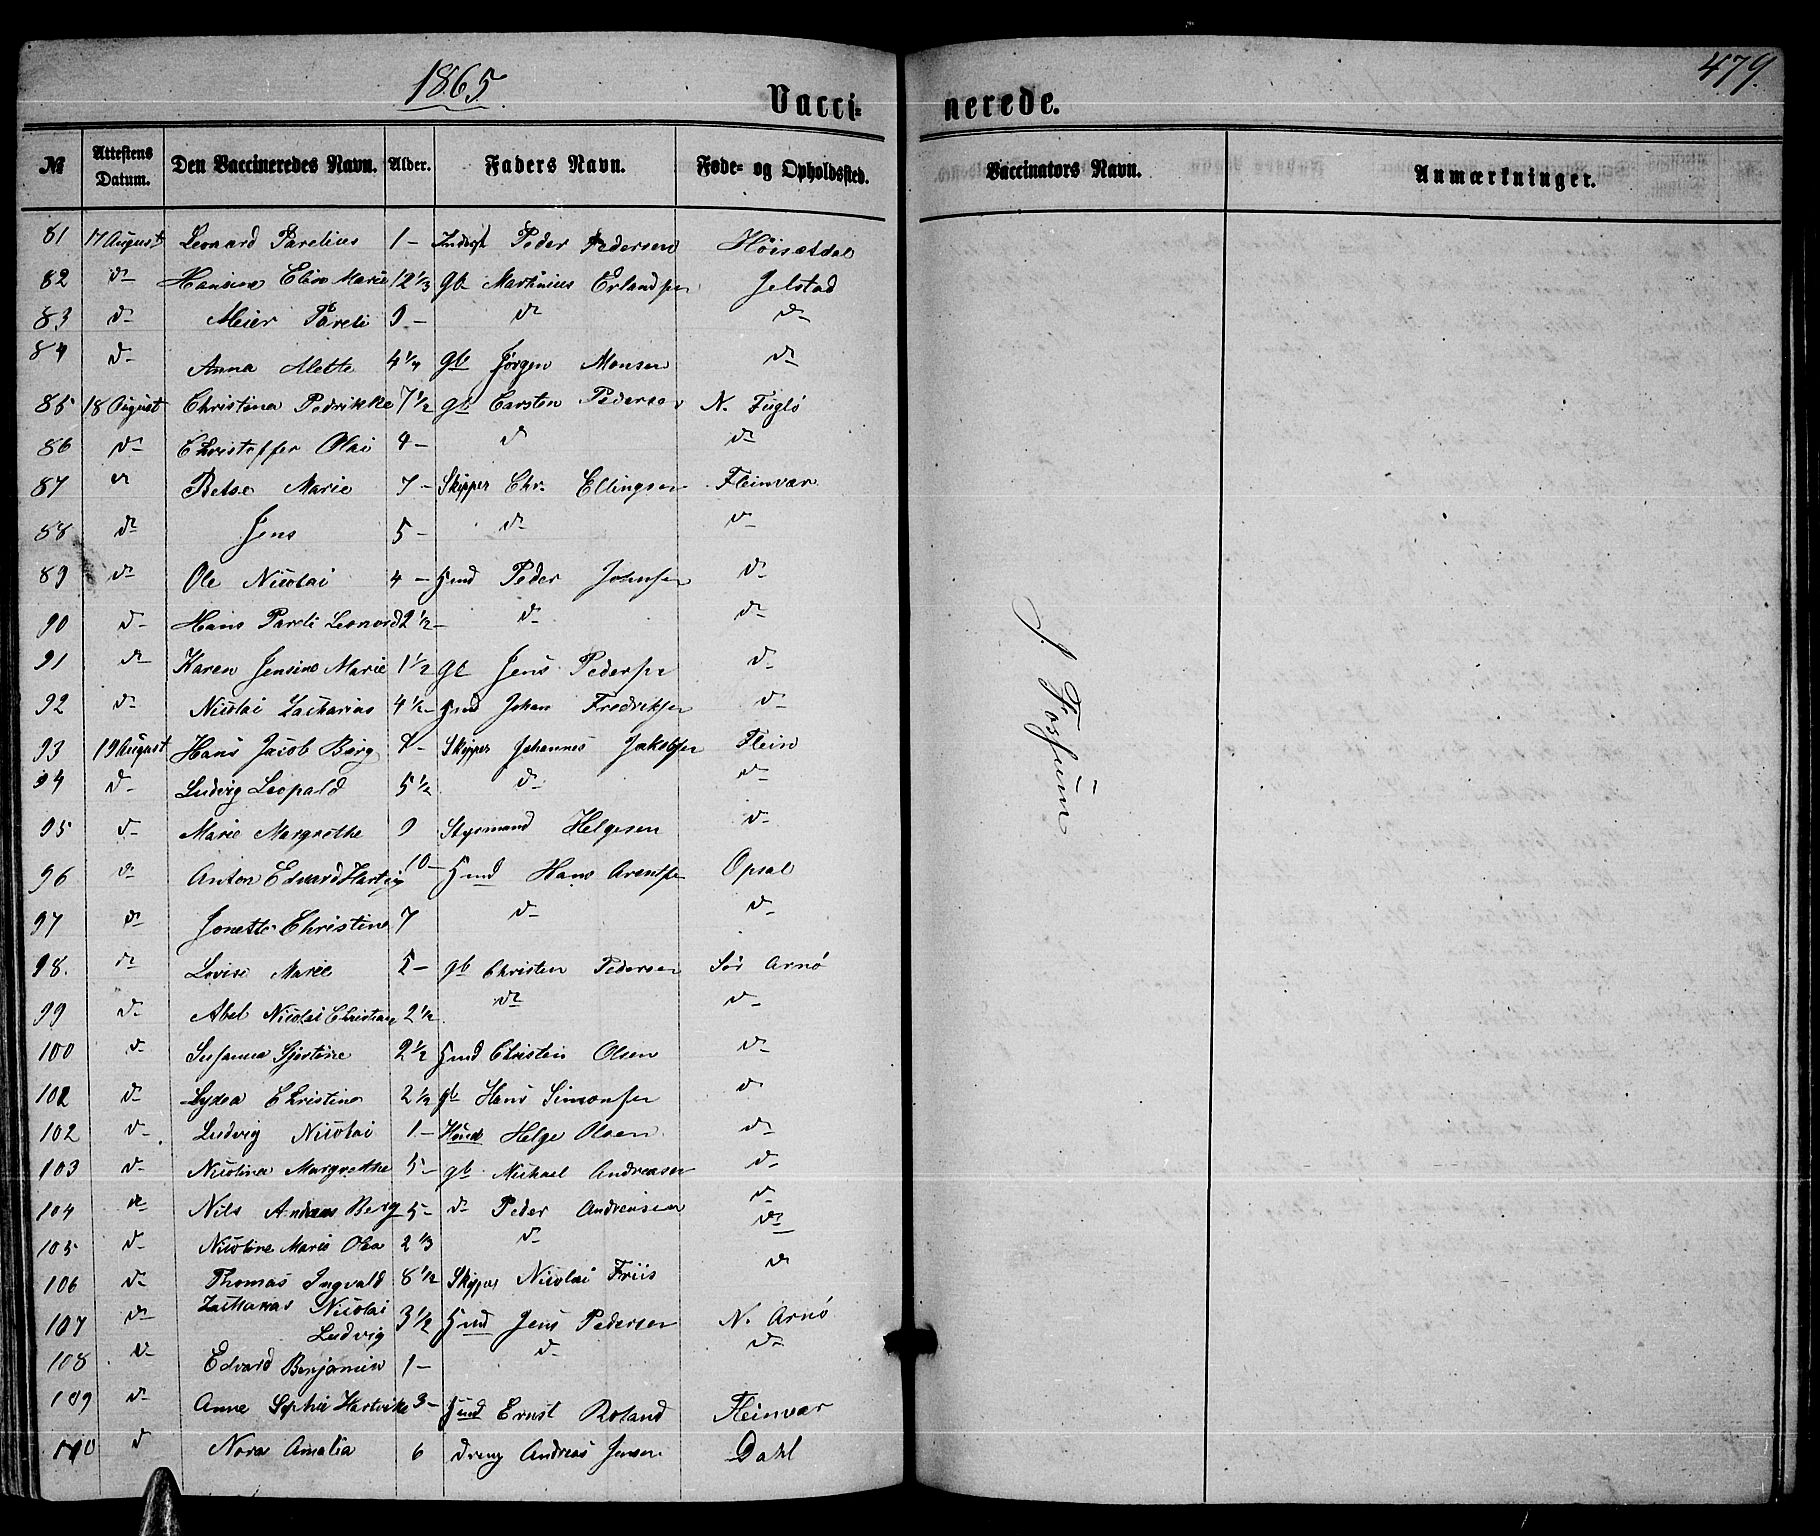 1865.
479.
Vacci-
nerede.
№ Attestens Datum. Den Vaccineredes Navn. Alder. Faders Navn. Føde- og Opholdssted. Vaccinators Navn. Anmærkninger.
81 17 August Leonard Parelius 1 - Peder Pedersen Høisetdal
82 d- Hansine Elise Marie 12 1/3 gb Martinius Erlandsen Jelstad
83 d- Meier Pareli 9 - d- d-
84 d- Anna Alette 4 1/4 gb Jörgen Monsen d-
85 18 August Christina Pedrikke 7 1/2 gb Carsten Pedersen N. Fuglö
86 d- Christoffer Olai 4 - d d-
87 d- Betse Marie 7 - Skipper Chr. Ellingsen Fleinvær
88 d- Jens 5 - d- d-
89 d- Ole Nicolai 4 - Hmd Peder Johnsen d-
90 d- Hans Pareli Leonard 2 1/2 - d- d-
91 d- Karen Jensine Marie 1 1/2 gb Jens Pedersen d-
92 d- Nicolai Zacharias 4 1/2 - Hmd Johan Fredriksen d-
93 19 August Hans Jacob Berg - Skipper Johannes Jakobsen Flein
94 d- Ludvig Leopald 5 1/2 d- d-
95 d- Marie Margrethe 9 Styrmand Helgesen d-
96 d- Anton Edvard Hartvig 10 - Hmd Hans Arentsen Opsal
97 d- Jonette Christine 7 d- d-
98. d- Lovise Marie 5 - gb Christen Pedersen Sör Arnö
99 d- Abel Nicolai Christian 2 1/2 d- d-
100 d- Susanna 2 1/2 Hmd Christen Olsen d-
102 d- Lydea Christine 2 1/2 gb Hans Simonsen d-
102 d- Ludvig Nicolai 1 - Helge Olsen d-
103 d- Nicolina Margrethe 5 - gb Michael Andreasen d-
104 d- Nils Andreas Berg 5 - d- Peder Andreasen d-
105 d- Nicoline Marie Olea 2 1/3 d- d-
106 d- Thomas Ingvald 8 1/2 Skipper Nicolai Friis d-
107 d- Zacharias Nicolai Ludvig 3 1/2 Hmd Jens Pedersen N. Arnö
108 d- Edvard Benjamin 1 - d- d-
109 d- Anne Sophie Hartvike 3 - Hmd Ernst Roland Fleinvær
110 d Nora Amalia 6 dreng Andreas Jensen Dahl
J. Fosheim